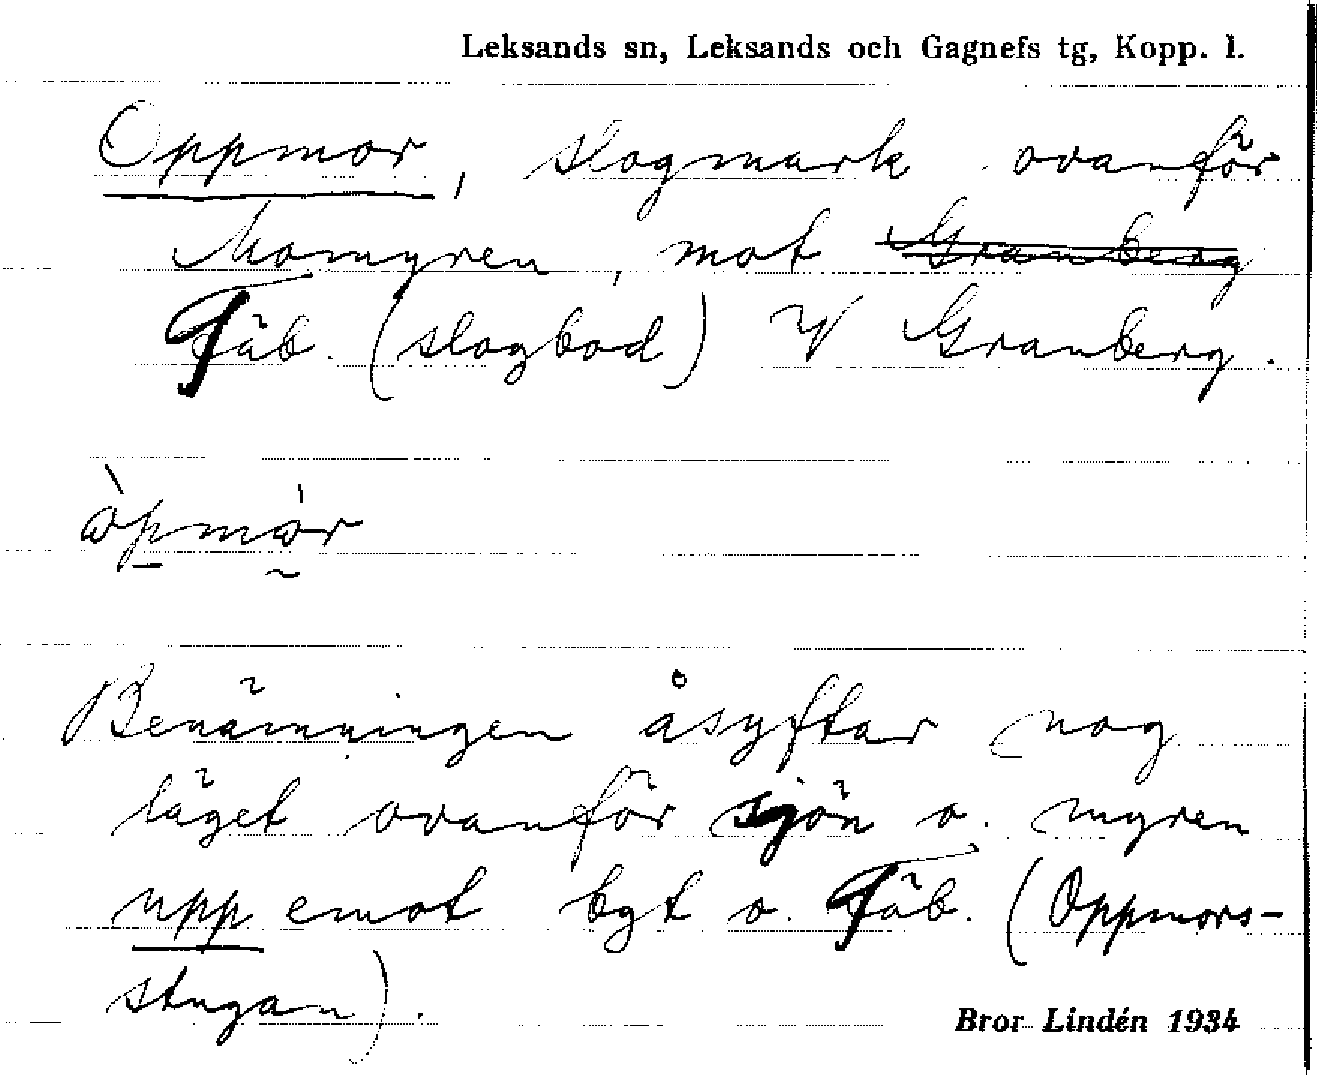 Leksands sn, Leksands och Gagnefs tg, Kopp. l.
Oppmor, slogmark ovanför
Momyren, mot Granberg
Fäb. (slogbod) V Granberg.
òpmór
Benämningen åsyftar nog
läget ovanför sjön o. myren
upp emot bgt o. Fäb. (Oppmors-
stugan).
Bror Lindén 1934